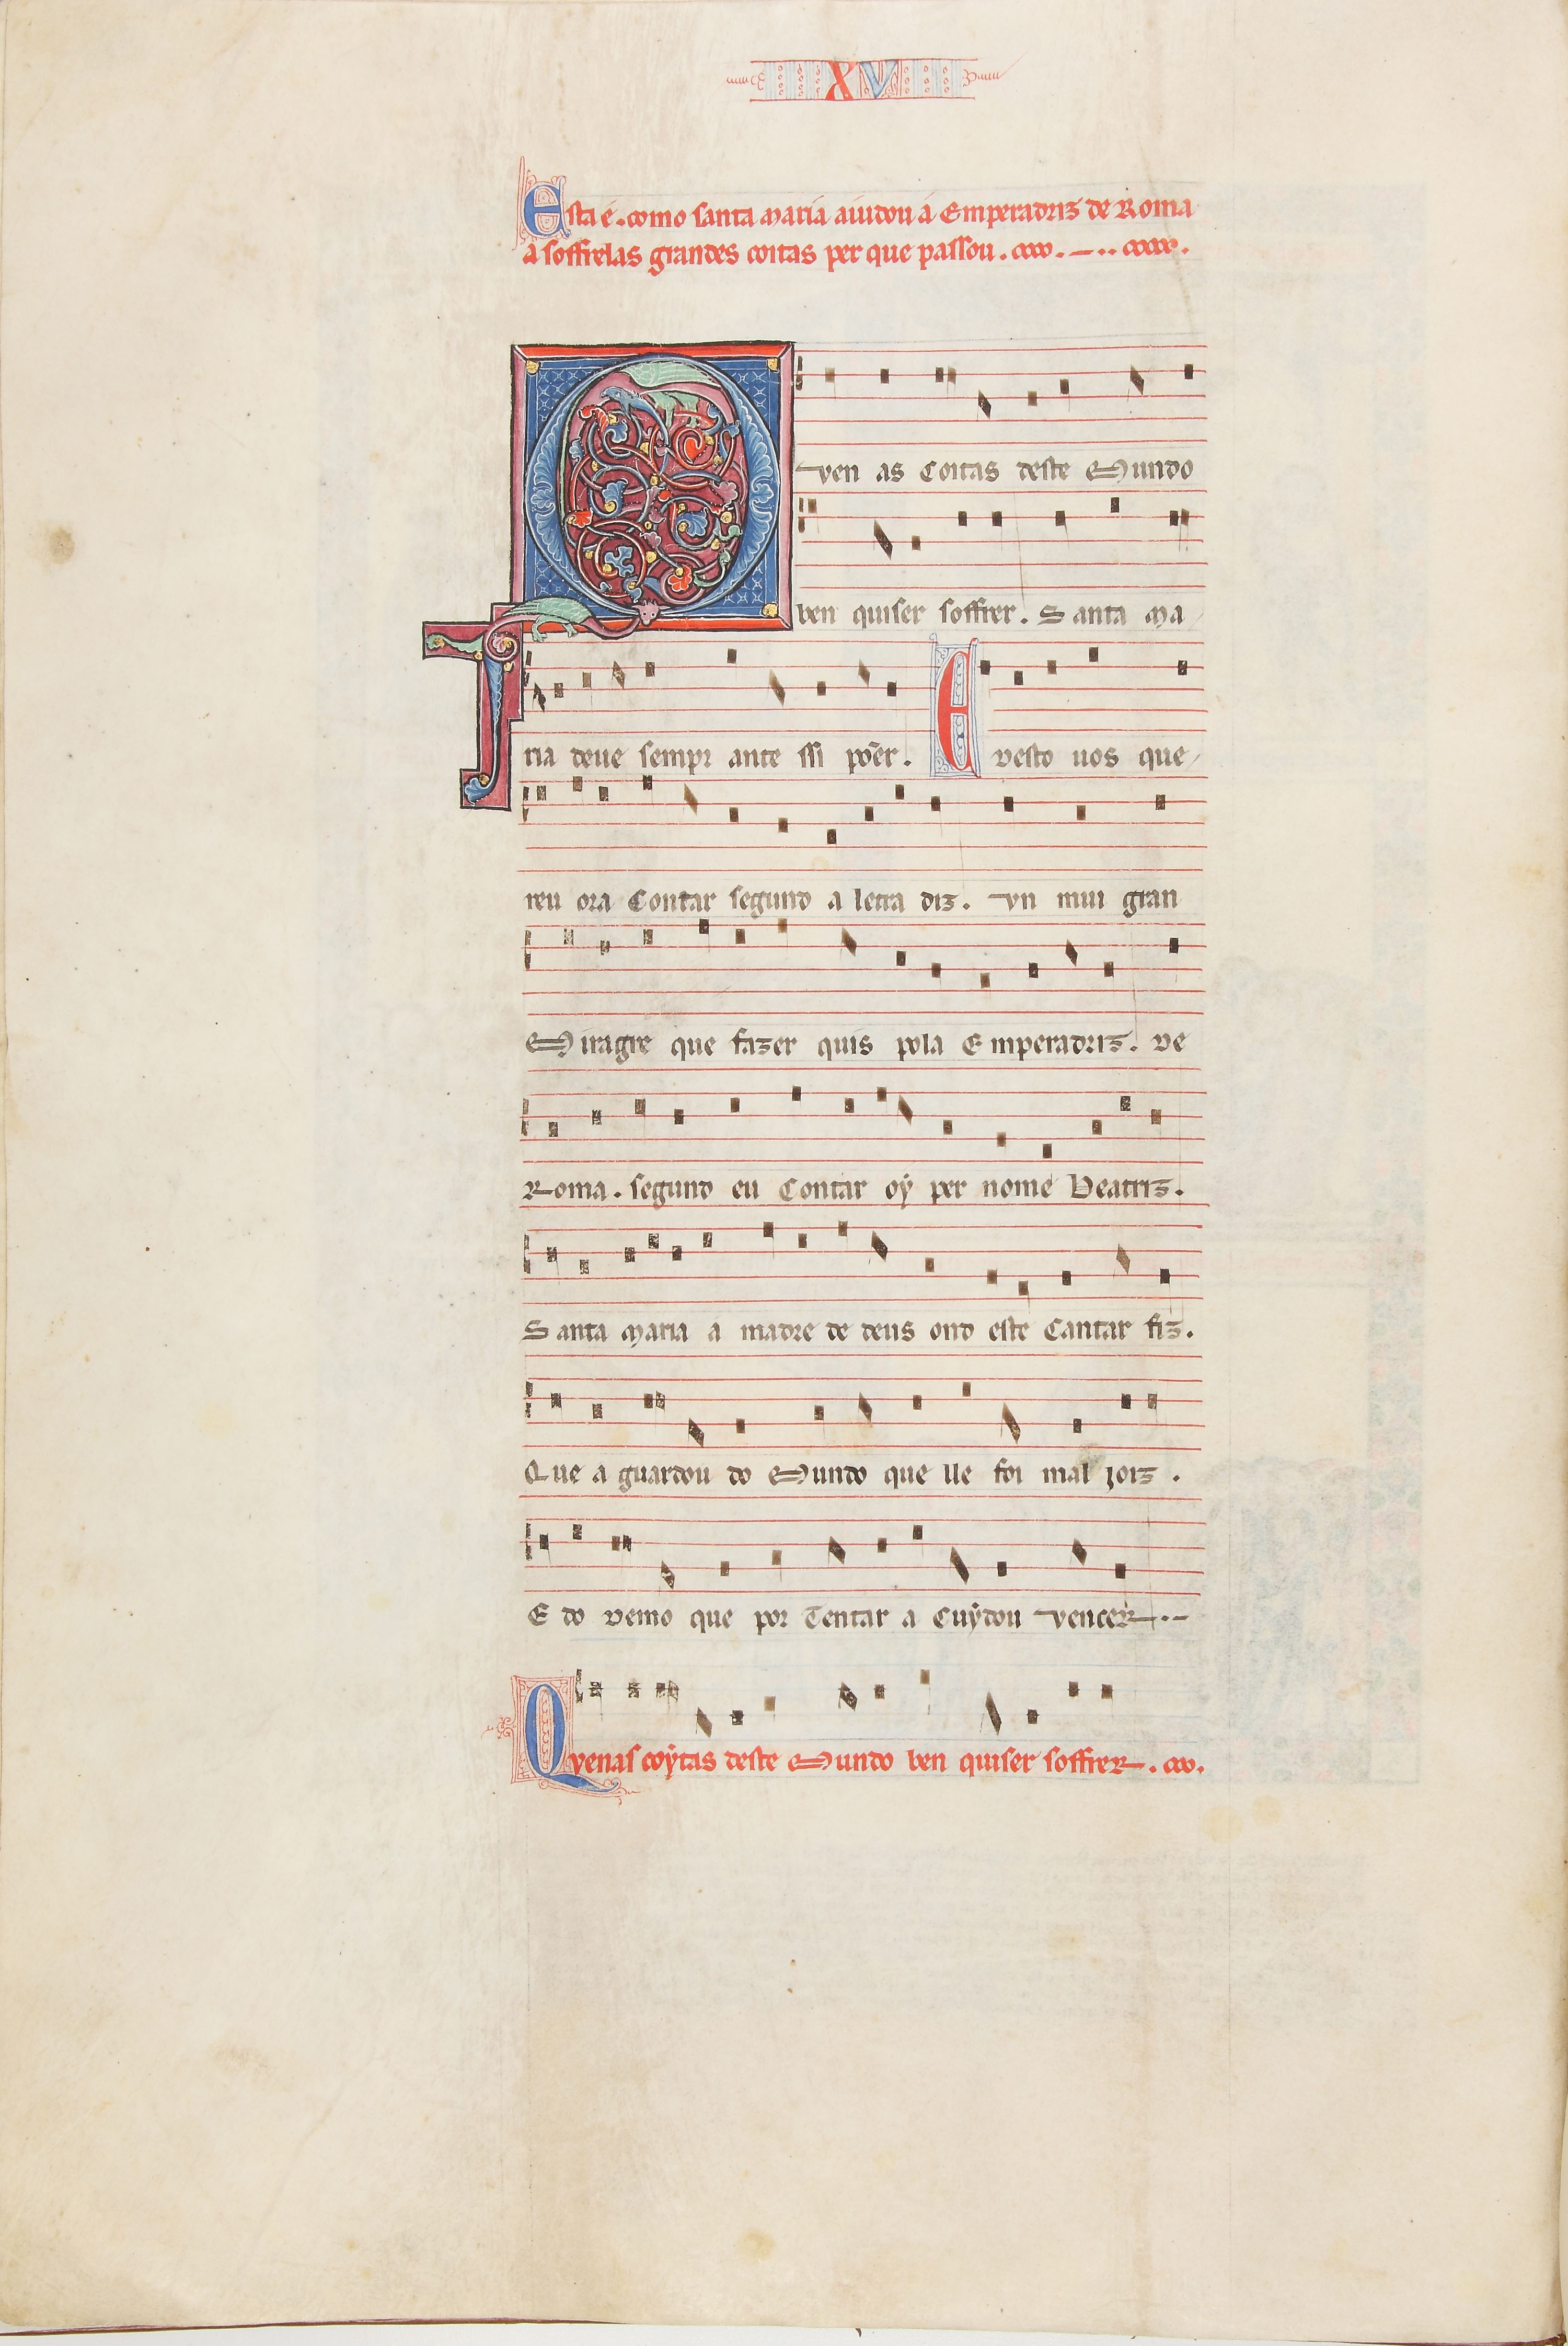 XV
Esta é. como santa maria aiudou á Emperadriz de Roma
a soffrelas grandes coitas per que passou.
Quen as Coitas deste Mundo
ben quiser soffrer. Santa Ma
ria deue sempr ante ssi põer. E desto uos que
reu ora Contar segund a letra diz. Un mui gran
Miragre que fazer quis pola Emperadriz. De
Roma. segund eu Contar oẏ per nome Beatriz.
Santa Maria a madre de deus ond este Cantar fiz.
Que a guardou do Mundo que lle foi mal joiz.
E do demo que por Tentar a Cuẏdou vencer
Quenas coẏtas deste Mundo ben quiser soffrer.